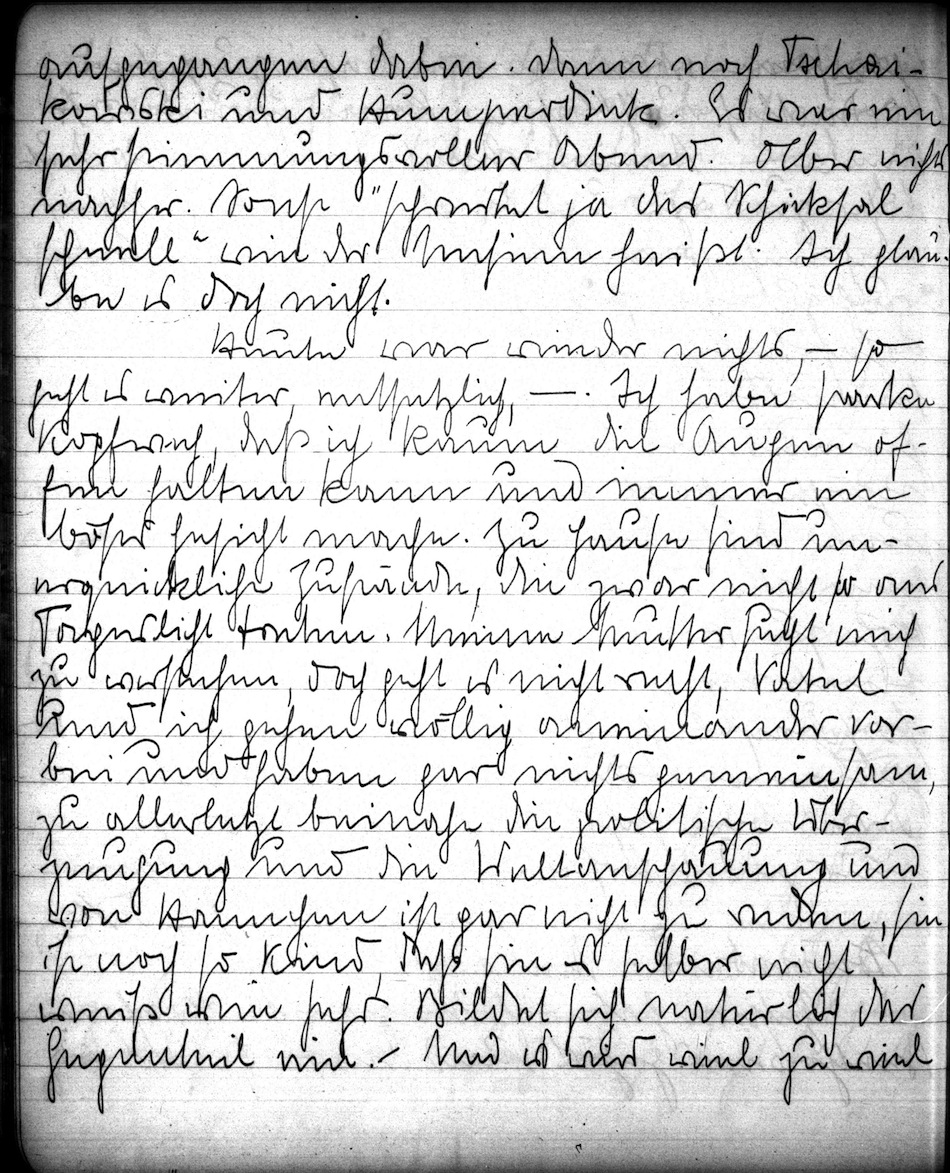 aufgegangen dabei. Dann noch Tschai-
kowski und Humperdink. Es war ein
sehr stimmungsvoller Abend. Aber nichts
nachher. Sonst "schreitet ja das Schicksal
schnell" wie der heißt. Ich glau-
be es doch nicht.
Heute war wieder nichts, — so
geht es weiter, entsetzlich, —. Ich habe starke
Kopfweh, daß ich kaum die Augen of-
fen halten kann und immer ein
böses Gesicht mache. Zu Hause sind un-
erquickliche Zustände, die zwar nicht so ans
Tageslicht treten. Meine Mutter sucht mich
zu verstehen, doch geht es nicht recht, Vatel
und ich gehen völlig aneinander vor-
bei und haben gar nichts gemeinsam,
zu allerletzt beinahe die politische Über-
zeugung und die Weltanschauung und
von Hannchen ist gar nicht zu reden, sie
ist noch so Kind, daß sie es selber nicht
weiß wie sehr. Bildet sich natürlich das
Gegenteil ein. – Und es wird viel zu viel